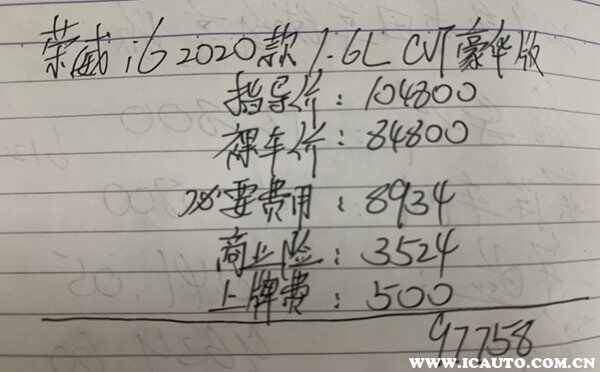 荣威i6 2020款 1.6L CVT豪华版
指导价：104800
裸车价：84800
必要费用：8934
商业险：3524
上牌费：500
97758
WWW.ICAUTO.COM.CN